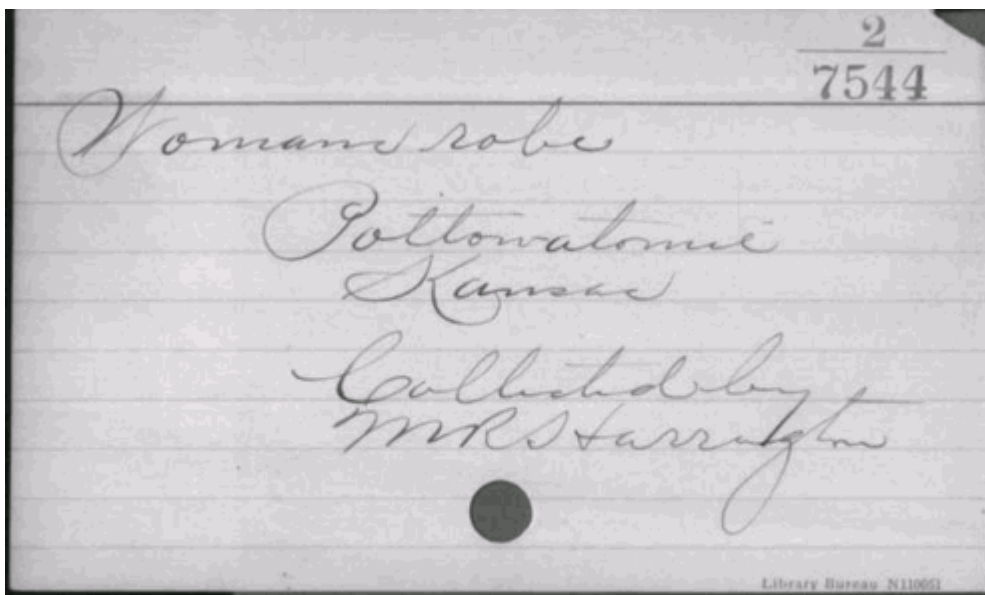 2
7544
Womans robe
Pottowatomie
Kansas
Collected by
MR Harrington
Library Bureau N110051